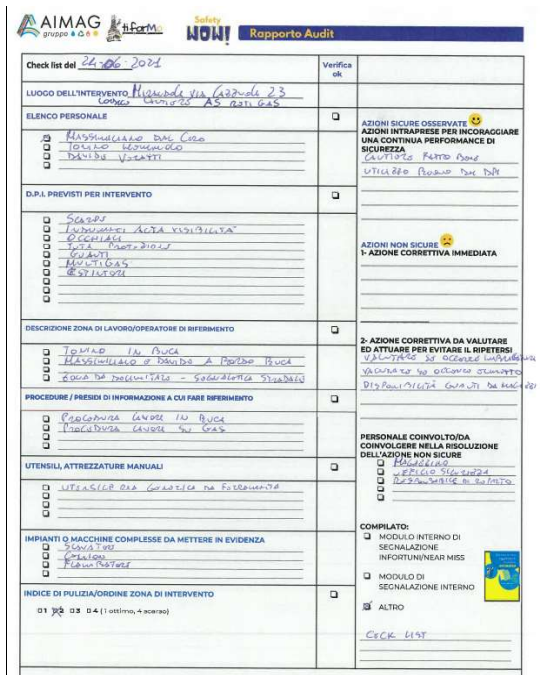 AIMAG
gruppo
tiforma
Safety
NOW!
Rapporto Audit
Check list del 24-06-2021
Verifica
ok
LUOGO DELL'INTERVENTO
VIA 23
AS RETI GAS
ELENCO PERSONALE
MASSIMILIANO DAL
TONINO
DAVIDE
D.P.I. PREVISTI PER INTERVENTO
SCARPE
INDUMENTI ALTA VISIBILITÀ
OCCHIALI
TUTA PROTEZIONE
GUANTI
MULTIGAS
ESTINTORE
DESCRIZIONE ZONA DI LAVORO/OPERATORE DI RIFERIMENTO
TONINO IN BUCA
MASSIMILIANO E DAVIDE A BORDO BUCA
ZONA DA - SEGNALETICA STRADALE
PROCEDURE / PRESIDI DI INFORMAZIONE A CUI FARE RIFERIMENTO
PROCEDURA LAVORI IN BUCA
PROCEDURA LAVORI SU GAS
UTENSILI, ATTREZZATURE MANUALI
UTENSILERIA GENERICA DA FERRAMENTA
IMPIANTI O MACCHINE COMPLESSE DA METTERE IN EVIDENZA
CAMION
INDICE DI PULIZIA/ORDINE ZONA DI INTERVENTO
1 2 3 4 (1 ottimo, 4 scarso)
AZIONI SICURE OSSERVATE
AZIONI INTRAPRESE PER INCORAGGIARE
UNA CONTINUA PERFORMANCE DI
SICUREZZA
CANTIERE FATTO BENE
UTILIZZO BUONO DEI DPI
AZIONI NON SICURE
1- AZIONE CORRETTIVA IMMEDIATA
2- AZIONE CORRETTIVA DA VALUTARE
ED ATTUARE PER EVITARE IL RIPETERSI
VALUTARE SE OCCORRE
VALUTARE SE OCCORRE
DISPONIBILITÀ GUANTI DA
PERSONALE COINVOLTO/DA
COINVOLGERE NELLA RISOLUZIONE
DELL'AZIONE NON SICURE
MAGAZZINO
UFFICIO SICUREZZA
RESPONSABILE DI REPARTO
COMPILATO:
MODULO INTERNO DI
SEGNALAZIONE
INFORTUNI/NEAR MISS
MODULO DI
SEGNALAZIONE INTERNO
ALTRO
CECK LIST